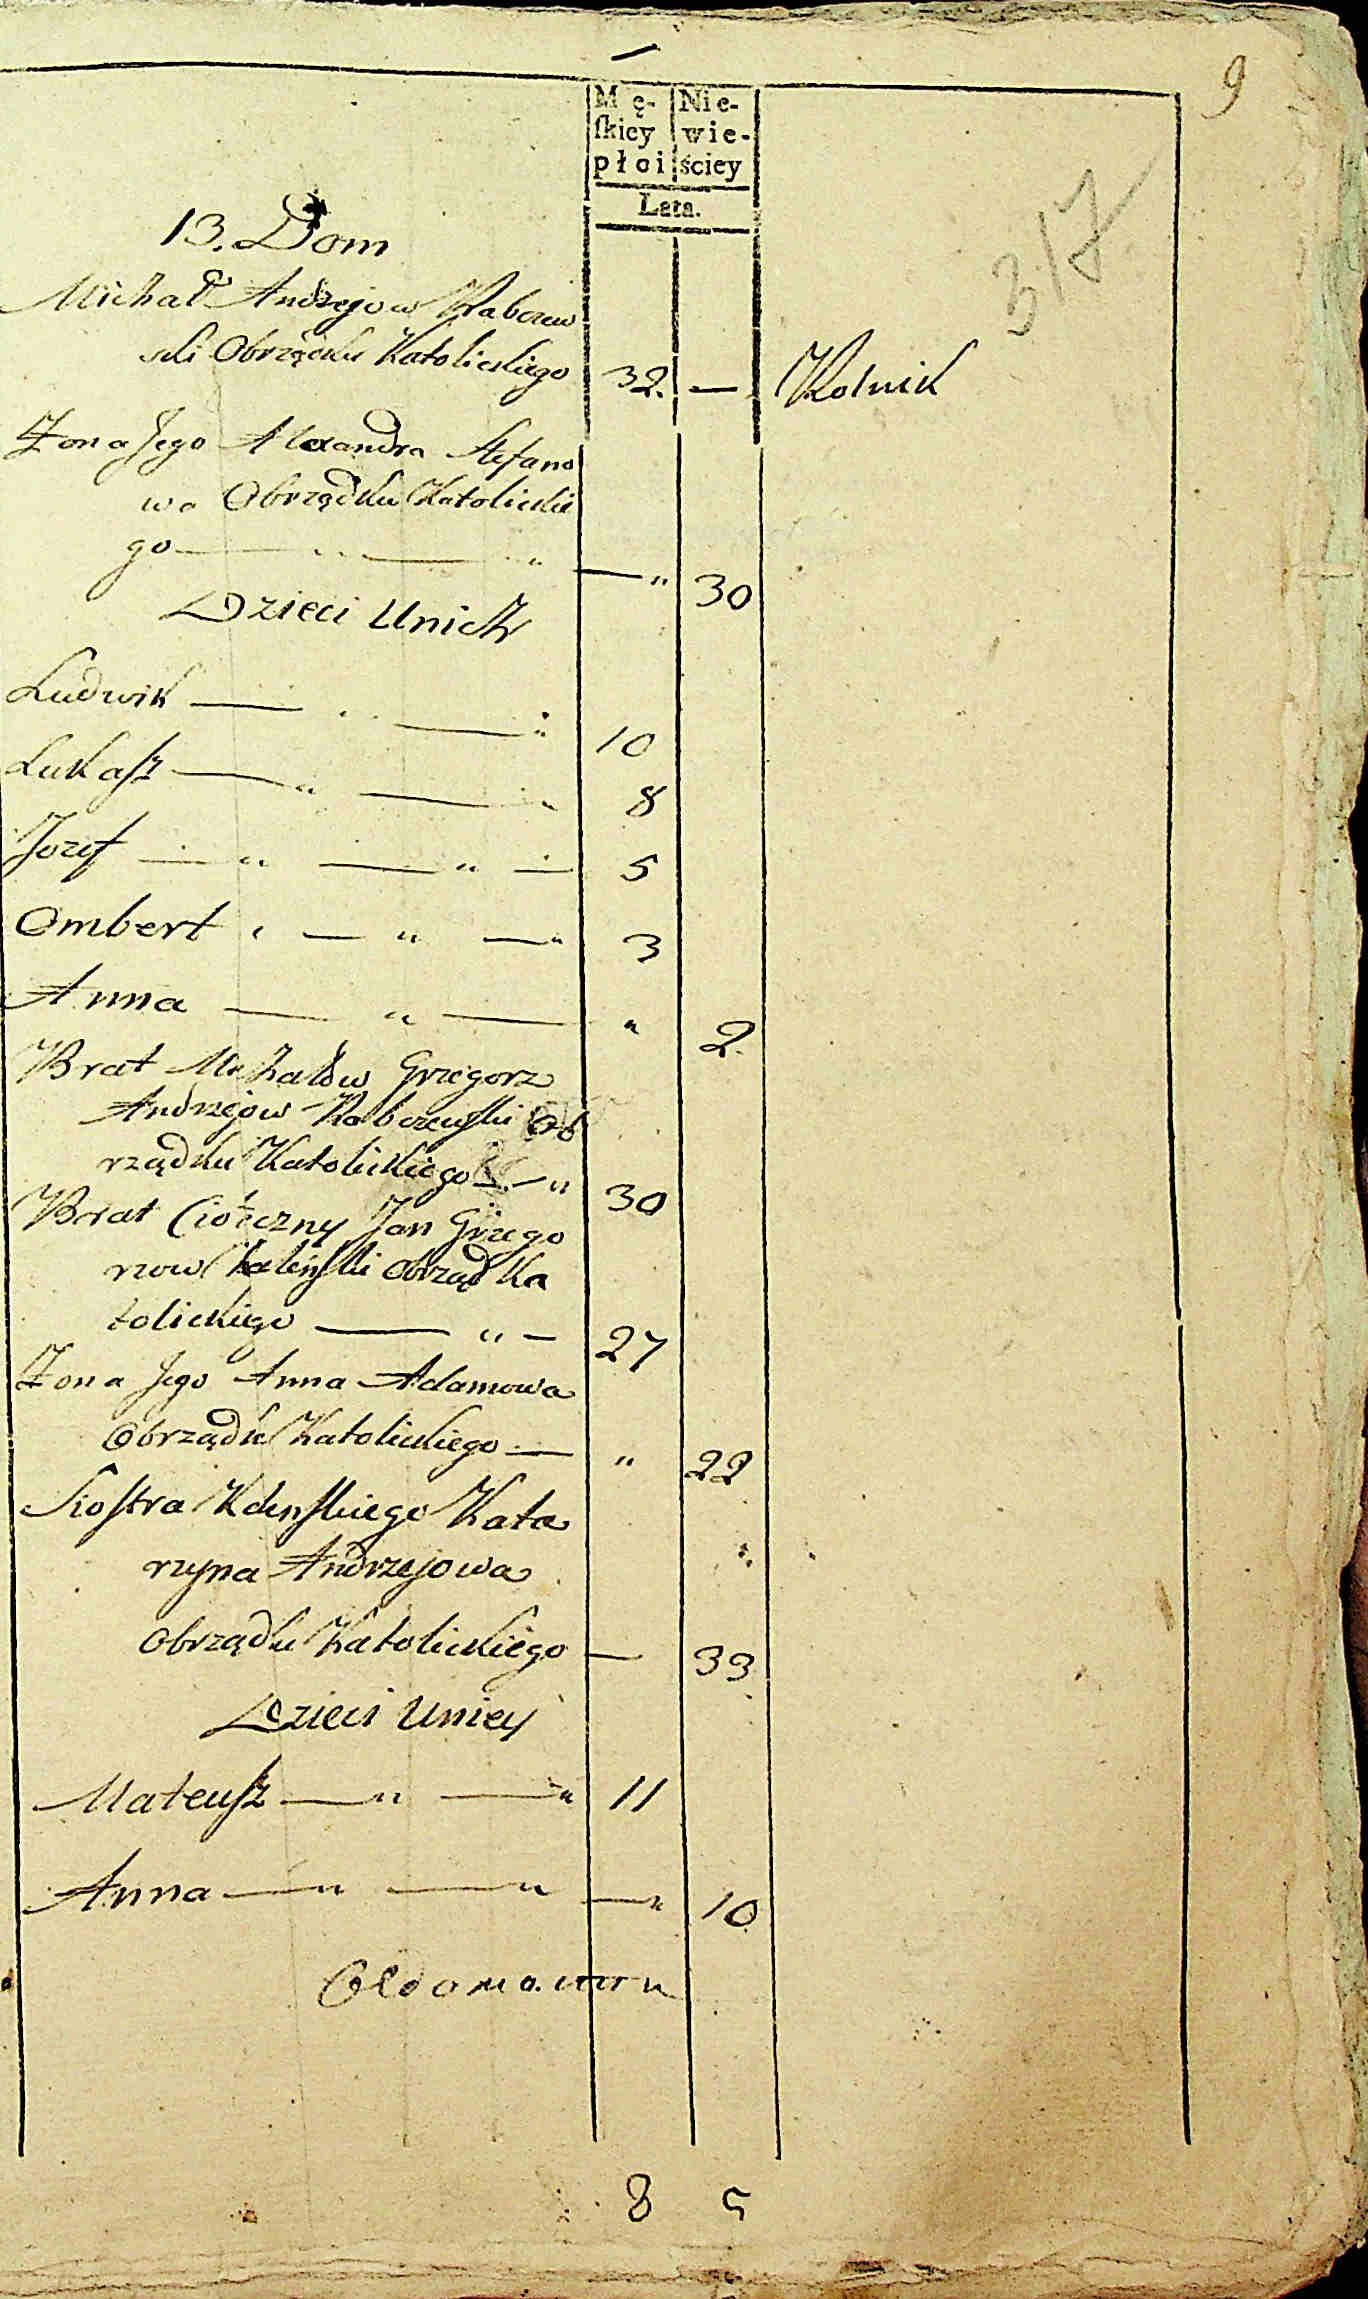 9
Mę- Nie-
skiey wie-
płoi ściey
Lata.
317
13. Dom
Michał Andrzejow Raborew
ski Obrządku Katolickiego 32. — Rolnik
Żona Jego Alexandra Stefano
wa Obrządku Katolickie
go — " — " — " 30
Dzieci Unich
Ludwik — " — " 10
Lukasz — " — " 8
Jozef — " — " — 5
Ombert " — " — " 3
Anna — " — " 2.
Brat Michałow Grzegorz
Andrzejow Raborewski Ob
rządku Katolickiego — " 30
Brat Ciołeczny Jan Grzego
rzow Kaleński Obrząd Ka
tolickiego — " — 27
Żona Jego Anna Adamowa
Obrządku Katolickiego — " 22
Siostra Kalenskiego Kata
rzyna Andrzejowa
Obrządku Katolickiego — 33
Dzieci Uniey
Mateusz — " — " 11
Anna — " — " — " 10
8 5